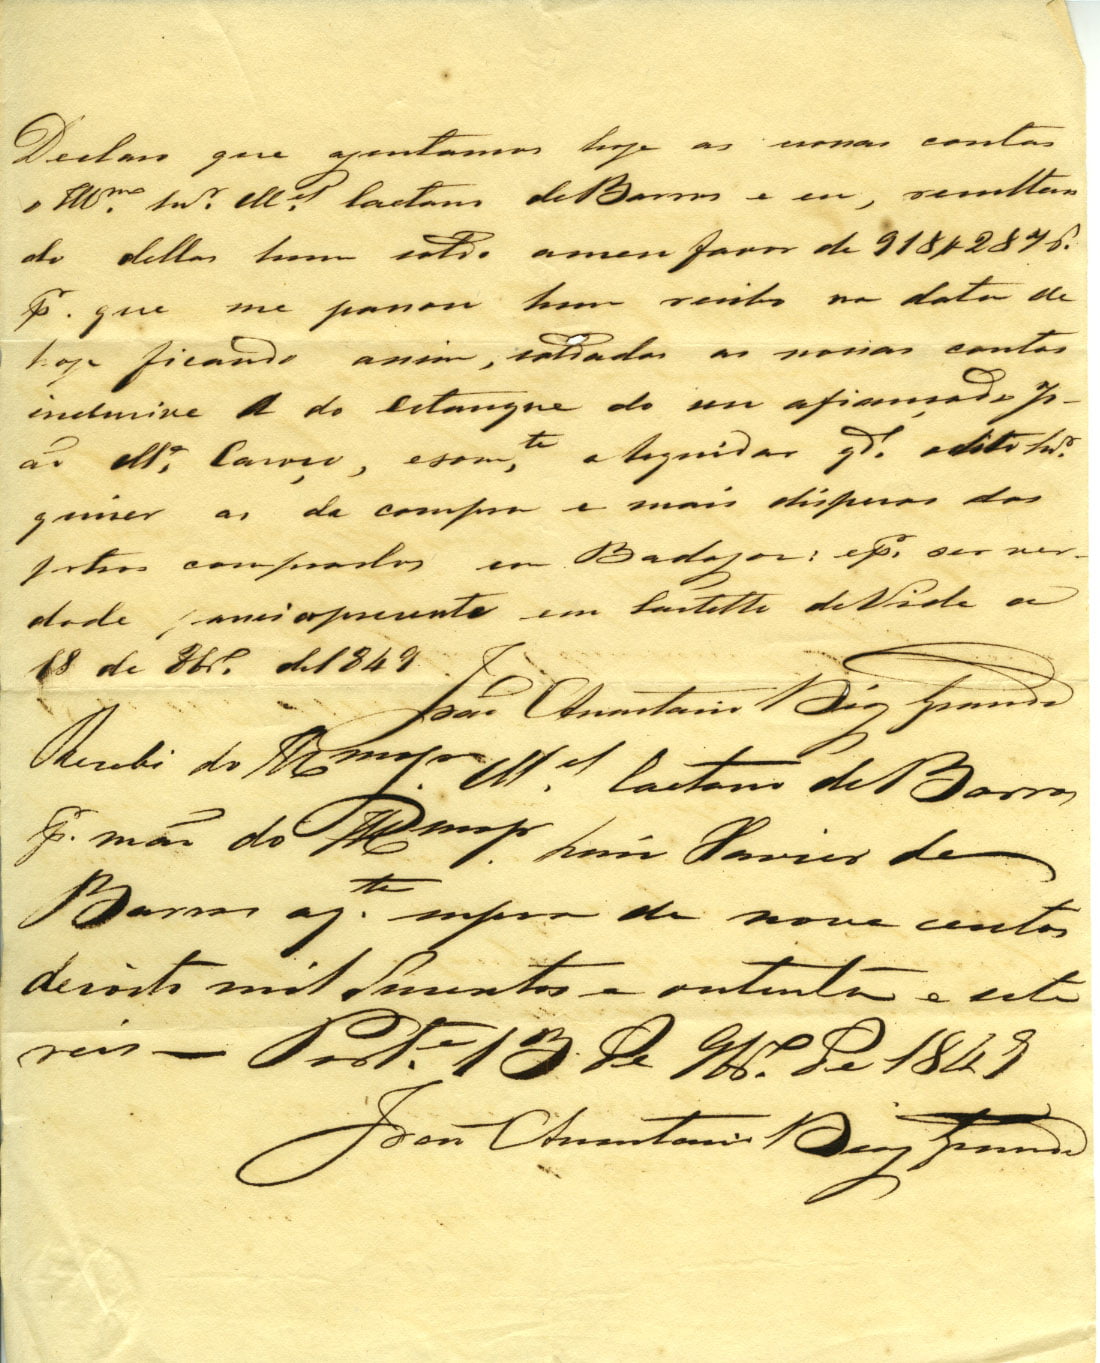 Declaro que ajuntamos hoje as nossas contas
o Illmo. Snr. Mel. Caetano de Barros e eu, resultan
do dellas hum saldo a meu favor de 918$287 rs.
pr. que me passou hum recibo na data de
hoje ficando assim, saldadas as nossas contas
inclusive a do Estanque do seu afiançado Jo-
ão Ma. Caroço, e som.te a liquidar qdo. o dito Snr.
quizer as da compra e mais dispezas dos
potros comprados em Badajoz: e pr. ser ver-
dade passei o presente em Castello de Vide a
18 de 8bro. de 1849
João Anastacio Dias Grande
Recebi do Illmo Sr. Mel. Caetano de Barros
pr. mão do Illmo Sr. Xavier de
Barros a q.te supra de nove centos
dezoito mil duzentos e outenta e sete
reis — Port.e 13 de 9bro. de 1849
João Anastacio Dias Grande